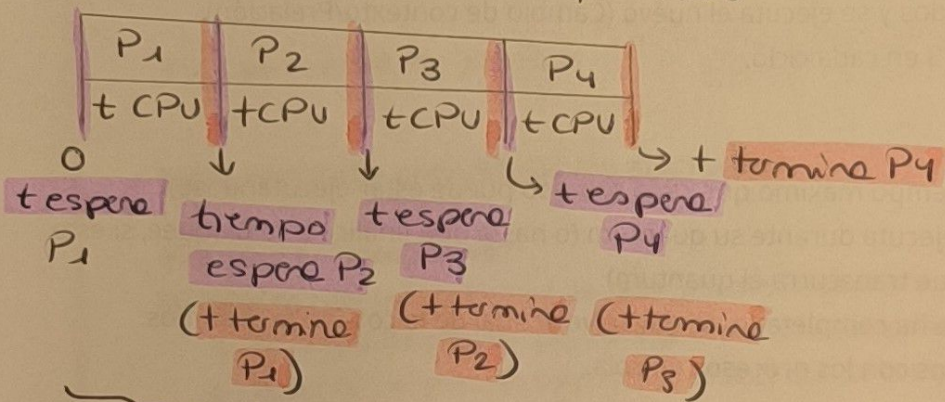 P1 P2 P3 P4
t CPU t CPU t CPU t CPU
0
t espera P1
tiempo espera P2 (t termina P1)
t espera P3 (t termina P2)
t espera P4 (t termina P3)
t termina P4